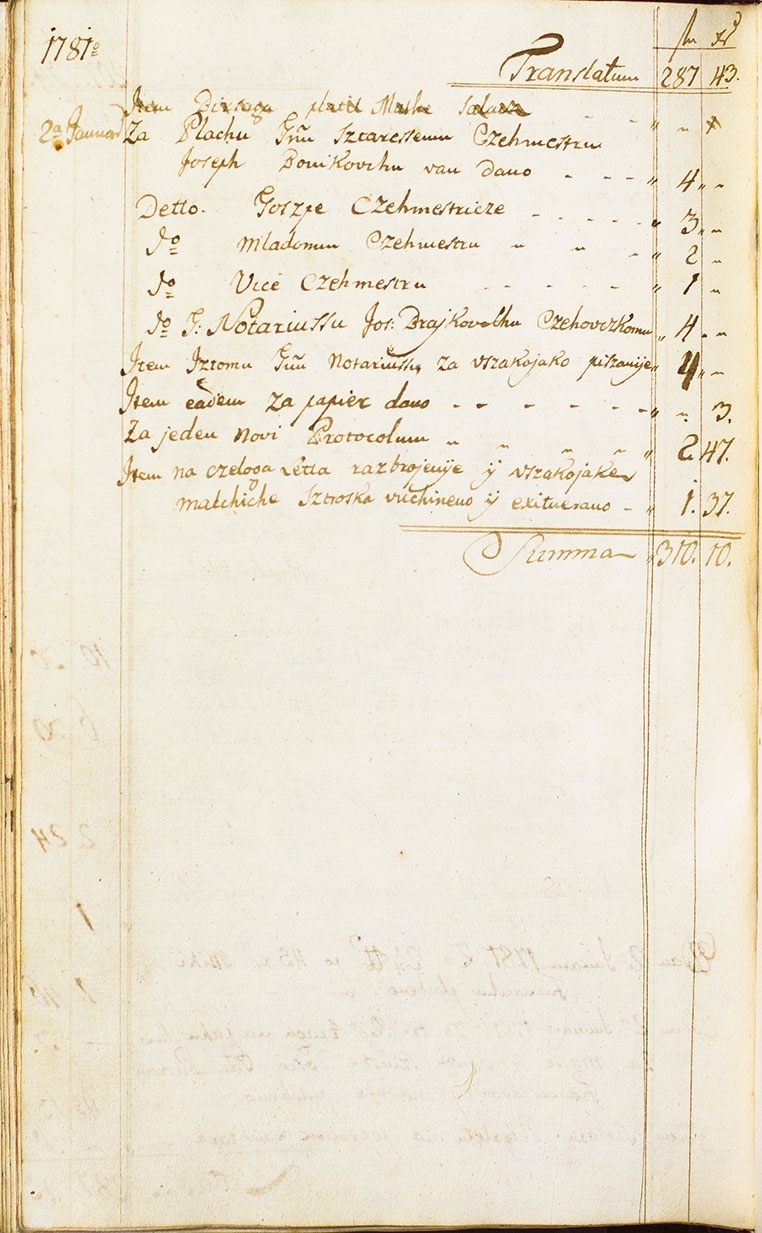 1781º
fl xr
Translatum 287 43.
Item plátil Maske
2a Januar Za Plachu Gnū Sztaressemu Czehmestru
Joseph Domikovichu van dano - - - " 4 " "
Detto. Goszpe Czehmestricze - - - - - " 3 " "
do Mladomu Czehmestru " " - " 2 "
do Vice Czehmestru - - - - - " 1 "
do G: Notariussu Jos: Drajkovichu Czehovzkomu " 4 " "
Item Isztomu Gnū Notariussu za vszakojako piszanije " 4 " "
Item eadem za papier dano - - - - - - " " 3.
Za jeden novi Protocolum " " " " " 2 47.
Item na czeloga Letta razbrojenije ÿ vszakojake
malchiche sztroska vuchineno ÿ exituerano - " 1. 37.
Summa " 310. 10.